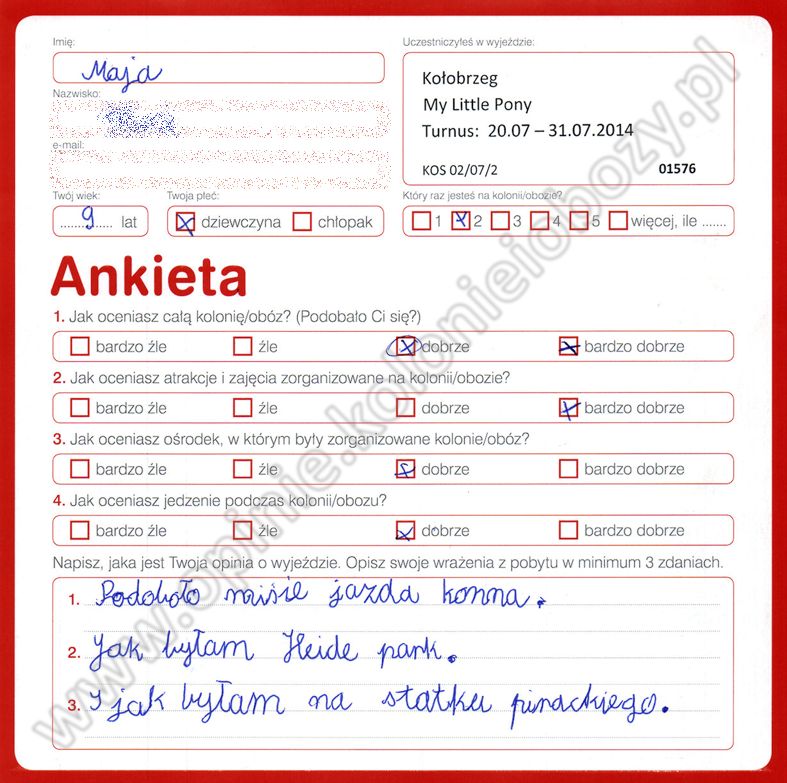 Imię:
Uczestniczyłeś w wyjeździe:
Maja
Kołobrzeg
Nazwisko:
My Little Pony
Turnus: 20.07 – 31.07.2014
e-mail:
KOS 02/07/2 01576
Twój wiek: Twoja płeć: Który raz jesteś na kolonii/obozie?
9 lat dziewczyna chłopak 1 2 3 4 5 więcej, ile .......
Ankieta
1. Jak oceniasz całą kolonię/obóz? (Podobało Ci się?)
bardzo źle źle dobrze bardzo dobrze
2. Jak oceniasz atrakcje i zajęcia zorganizowane na kolonii/obozie?
bardzo źle źle dobrze bardzo dobrze
3. Jak oceniasz ośrodek, w którym były zorganizowane kolonie/obóz?
bardzo źle źle dobrze bardzo dobrze
4. Jak oceniasz jedzenie podczas kolonii/obozu?
bardzo źle źle dobrze bardzo dobrze
Napisz, jaka jest Twoja opinia o wyjeździe. Opisz swoje wrażenia z pobytu w minimum 3 zdaniach.
1. Podobało misie jazda konna.
2. Jak byłam Heide park.
3. I jak byłam na statku pirackiego.
www.opinie.kolonieiobozy.pl